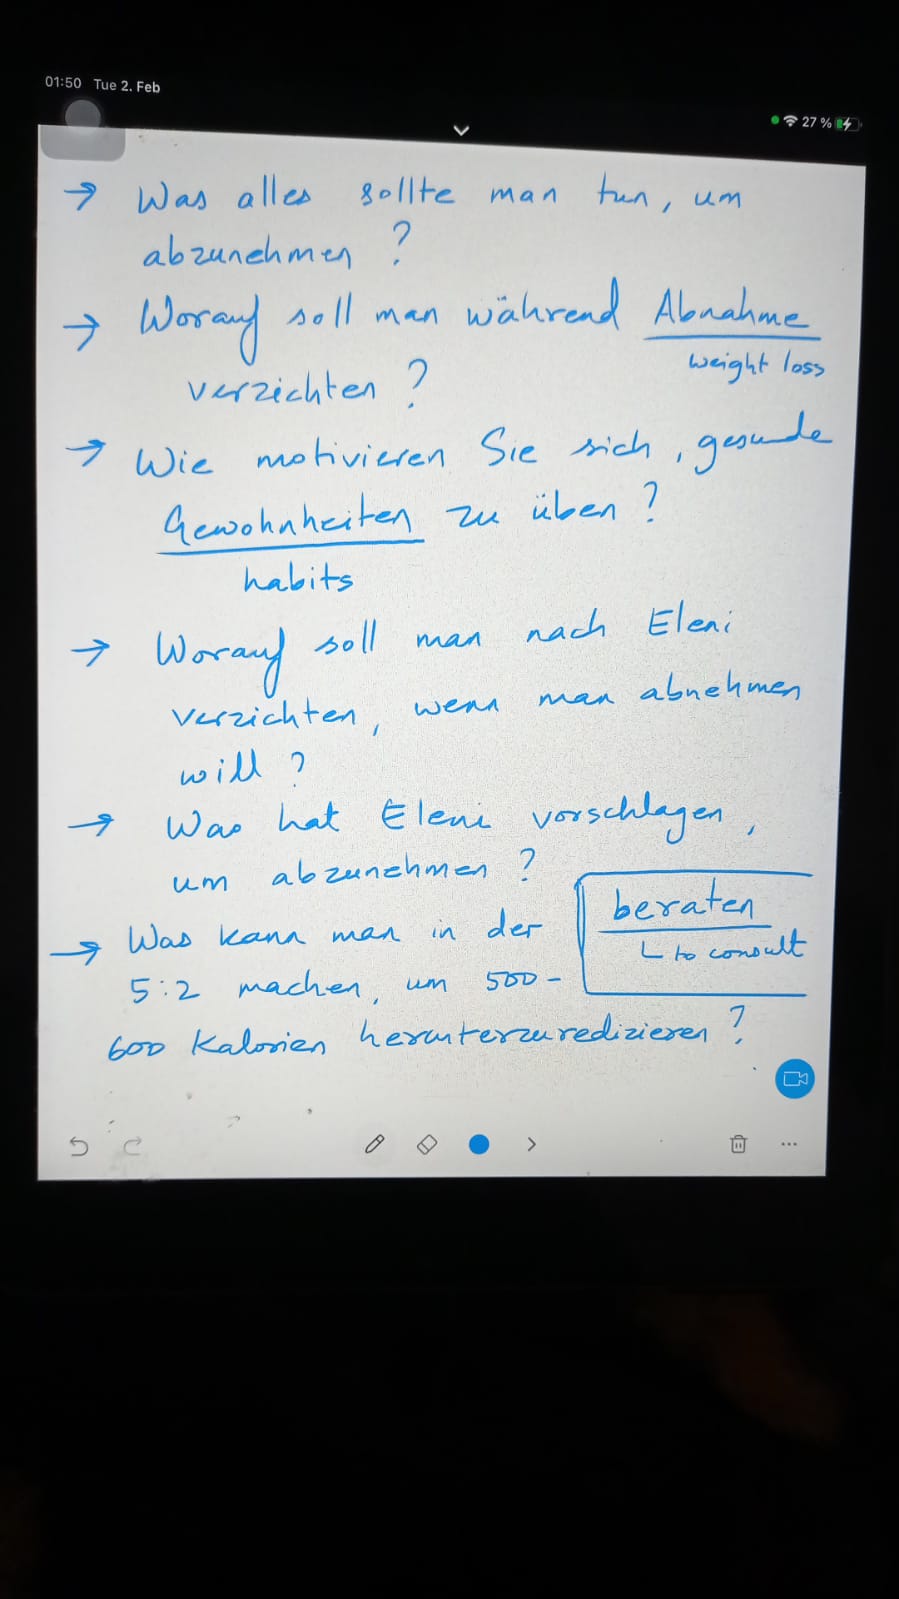 01:50 Tue 2. Feb
27 %
→ Was alles sollte man tun, um
abzunehmen ?
→ Worauf soll man während Abnahme
weight loss
verzichten ?
→ Wie motivieren Sie sich, gesunde
Gewohnheiten zu üben ?
habits
→ Worauf soll man nach Eleni
verzichten, wenn man abnehmen
will ?
→ Was hat Eleni vorschlagen,
um abzunehmen ?
beraten
↳ to consult
→ Was kann man in der
5:2 machen, um 500 -
600 Kalorien herunterzuredizieren ?